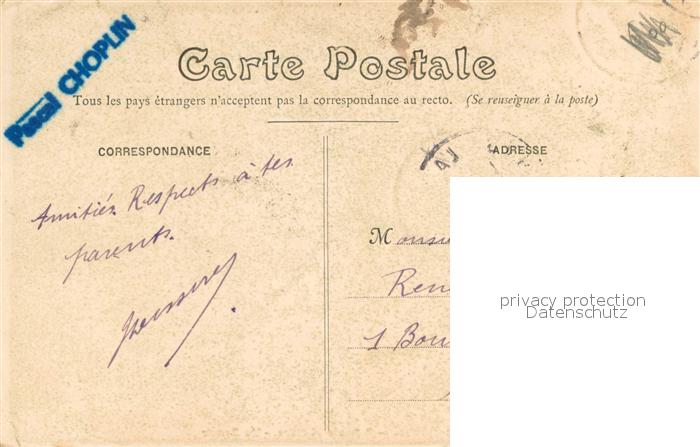 Pascal CHOPLIN
Carte Postale
Tous les pays étrangers n'acceptent pas la correspondance au recto. (Se renseigner à la poste)
CORRESPONDANCE
ADRESSE
Amitiés Respects à tes
parents.
Monsie
Ren
1 Bou
privacy protection
Datenschutz